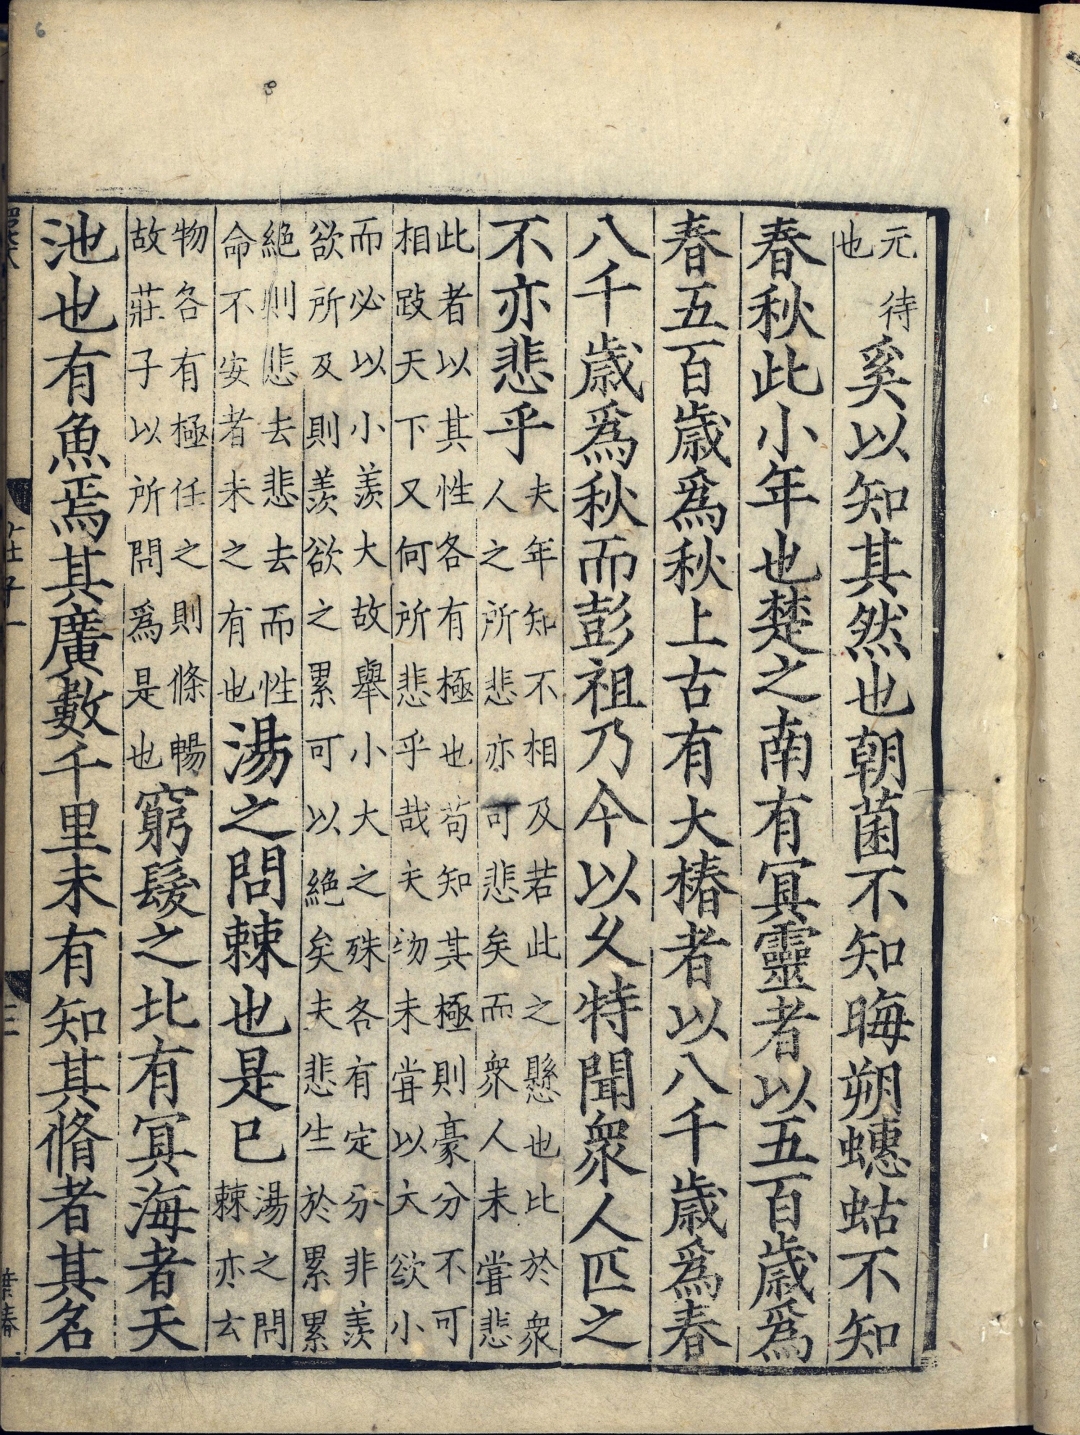 元待
也
奚以知其然也朝菌不知晦朔蟪蛄不知
春秋此小年也楚之南有冥靈者以五百歳爲
春五百歳爲秋上古有大椿者以八千歳爲春
八千歳爲秋而彭祖乃今以久特聞衆人匹之
不亦悲乎
夫年知不相及若此之懸也比於衆
人之所悲亦可悲矣而衆人未甞悲
此者以其性各有極也苟知其極則豪分不可
相跂天下又何所悲乎哉夫物未甞以大欲小
而必以小羨大故舉小大之殊各有定分非羨
欲所及則羨欲之累可以絶矣夫悲生於累累
絶則悲去悲去而性
命不安者未之有也
湯之問棘也是已
湯之問
棘亦玄
物各有極任之則條暢
故莊子以所問爲是也
窮髮之北有冥海者天
池也有魚焉其廣數千里未有知其脩者其名
莊子一
三